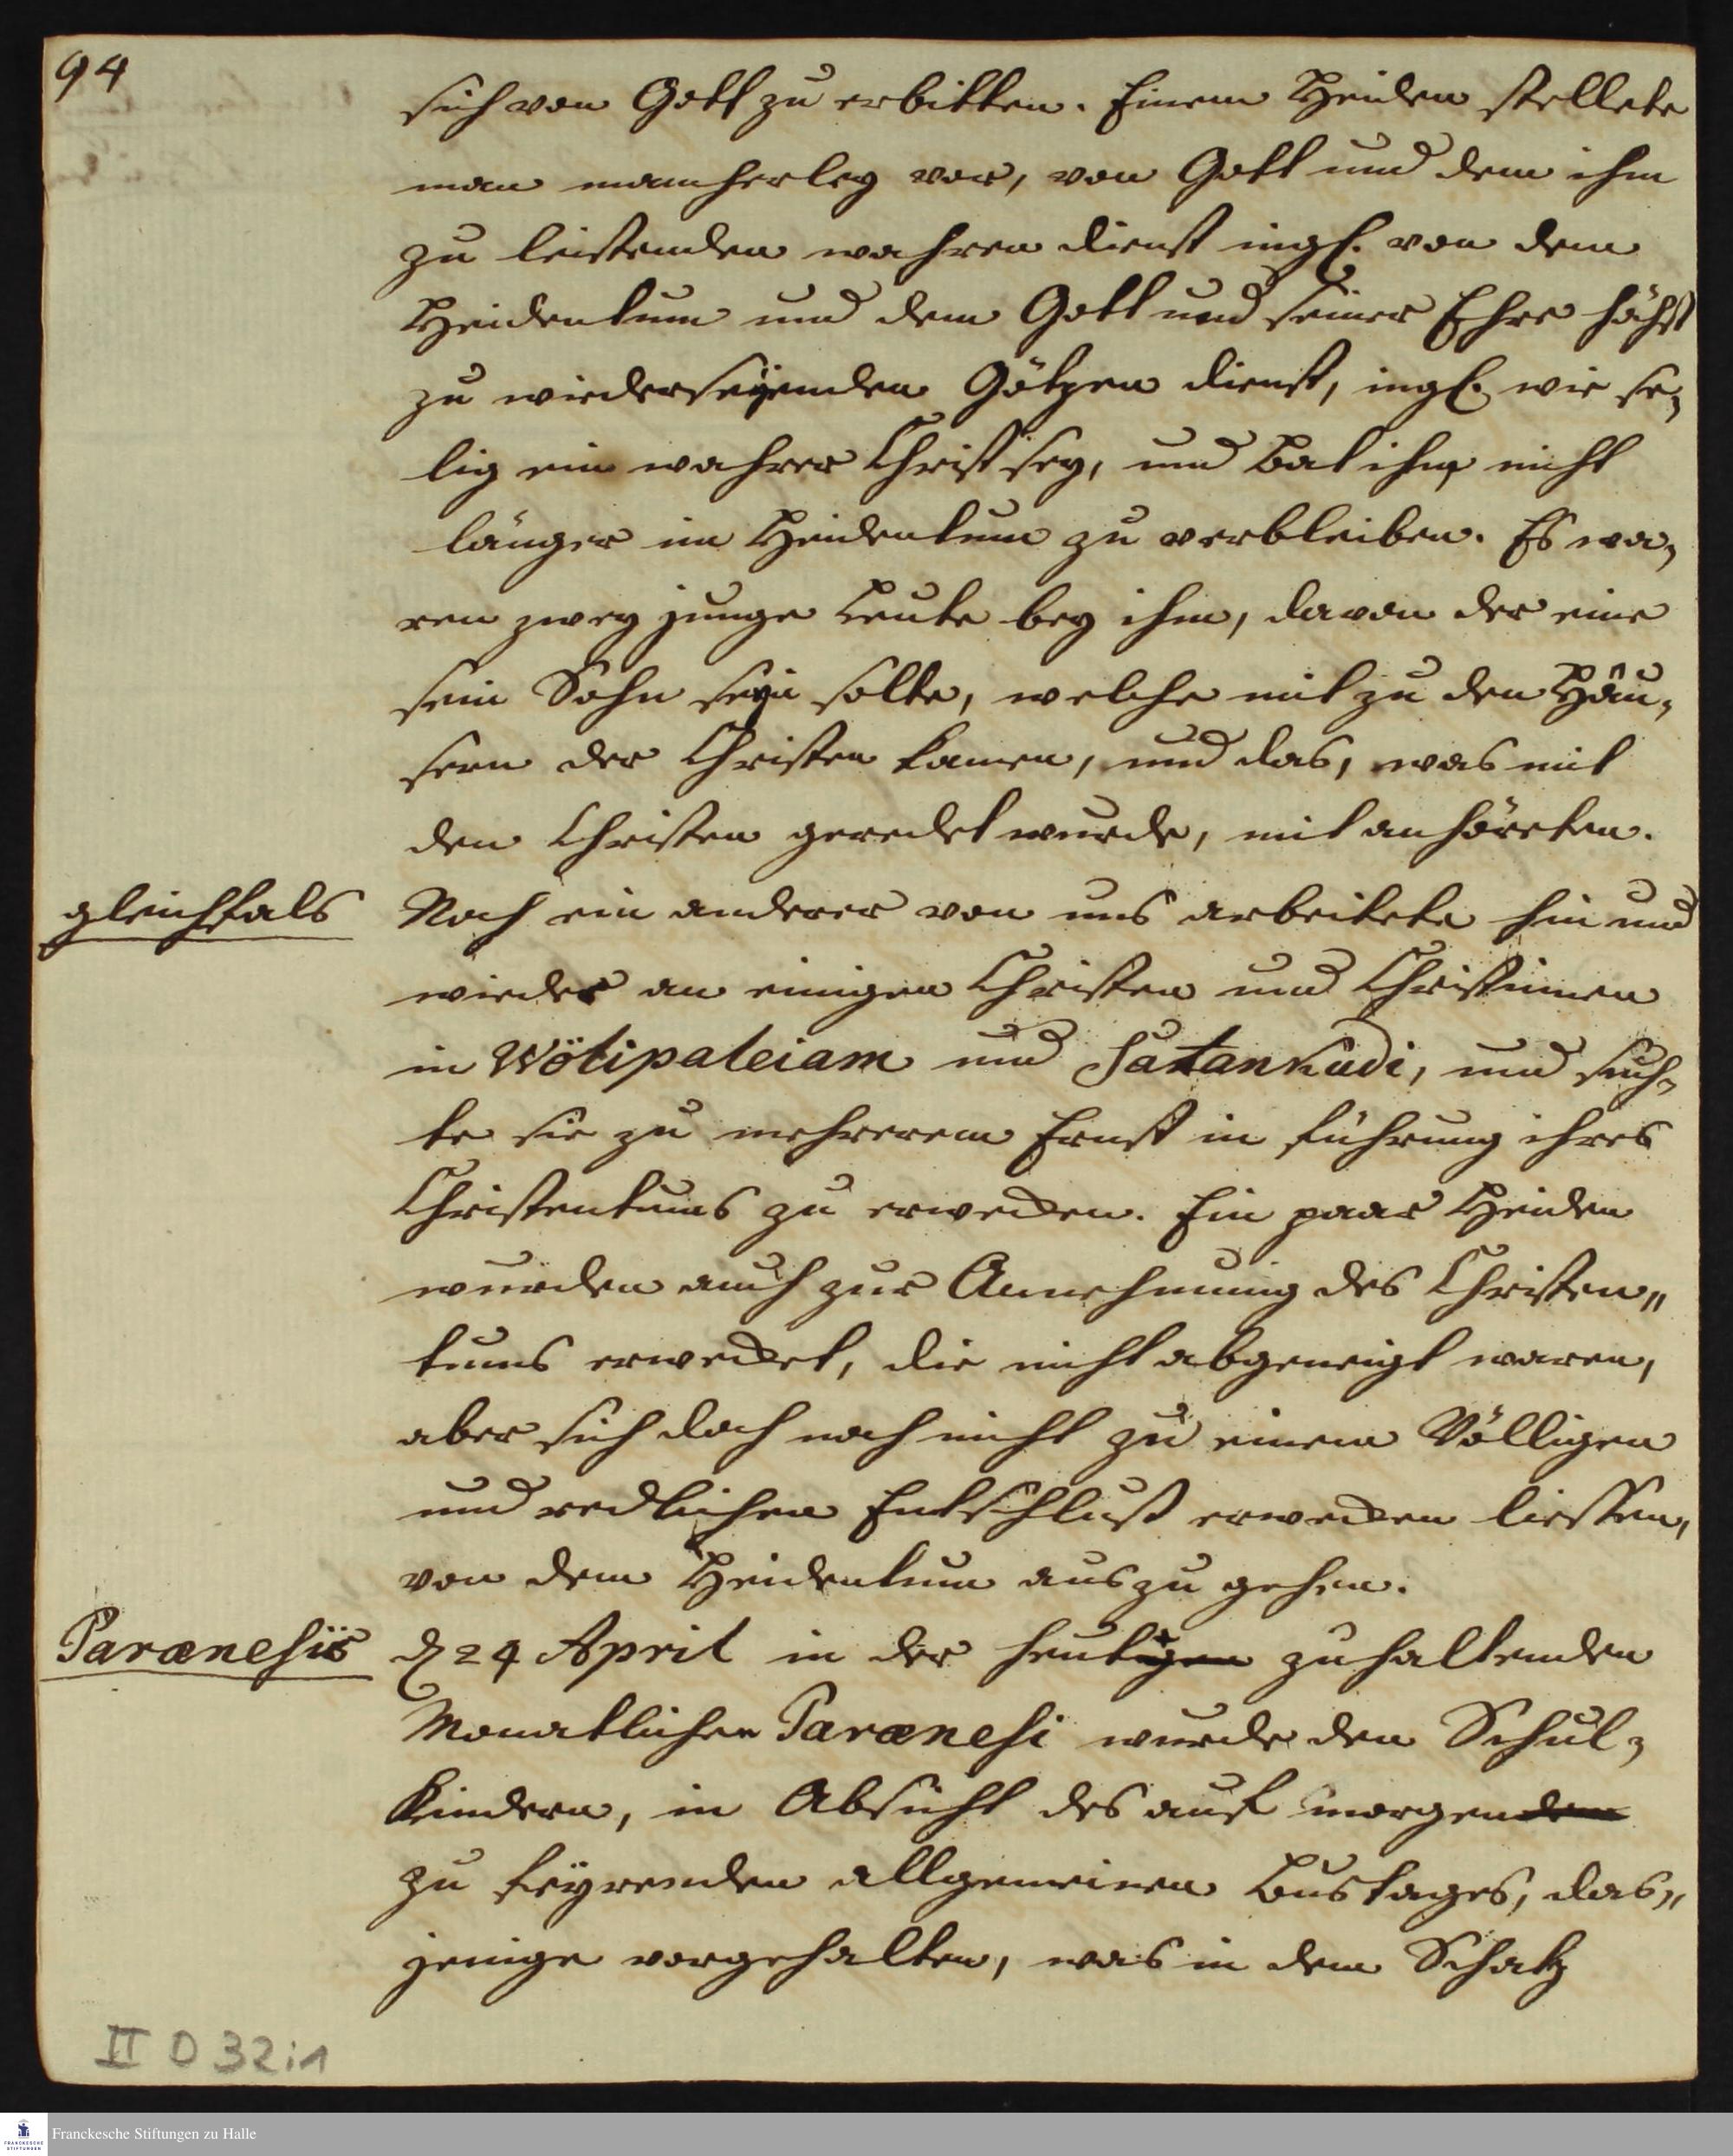 94
sich von Gott zu erbitten. Einem Heiden stellete
man mancherley vor, von Gott und dem ihm
zu leistenden wahren dienst ingl. von dem
Heidentum und dem Gott und seiner Ehre höchst
zu wiederseyenden Götzen dienst, ingl. wie se=
lig ein wahrer Christ sey, und bat ihn, nicht
länger im Heidentum zu verbleiben. Es wa=
ren zwey junge Leute bey ihm, davon der eine
sein Sohn seyn solte, welche mit zu den Häu=
sern der Christen kamen, und das, was mit
den Christen geredet wurde, mit anhöreten.
gleichfals
Noch ein anderer von uns arbeitete hin und
wieder an einigen Christen und Christinnen
in Wötipaleiam und Satankudi, und such=
te sie zu mehrerem Ernst in führung ihres
Christentums zu erwecken. Ein paar Heiden
wurden auch zur Annehmung des Christen=
tums erwecket, die nicht abgeneigt waren,
aber sich doch noch nicht zu einem Völligen
und redlichen Entschluß erwecken liessen,
von dem Heidentum auszugehen.
Parænesis
d 24 April in der heutigen zuhaltenden
Monatlichen Parænesi wurde den Schul=
Kindern, in Absicht des auf morgenden
zu feyrenden allgemeinen Bustages, das=
jenige vorgehalten, was in dem Schatz
II D 32i1
Franckesche Stiftungen zu Halle
FRANCKESCHE
STIFTUNGEN